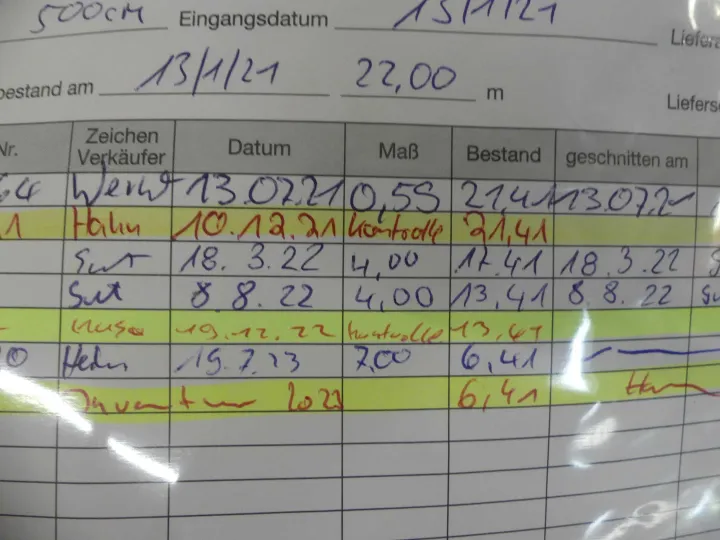 500cm Eingangsdatum 13/1/21
bestand am 13/1/21 22,00 m Liefersc
Nr. Zeichen Verkäufer Datum Maß Bestand geschnitten am
64 13.07.21 0,59 21,41 13.07.21
1 Hahn 10.12.21 Kontrolle 21,41
Gut 18.3.22 4,00 17.41 18.3.22
Gut 8.8.22 4,00 13,41 8.8.22
19.12.22 Kontrolle 13,41
0 Hahn 19.7.23 7,00 6,41
Inventur 2023 6,41